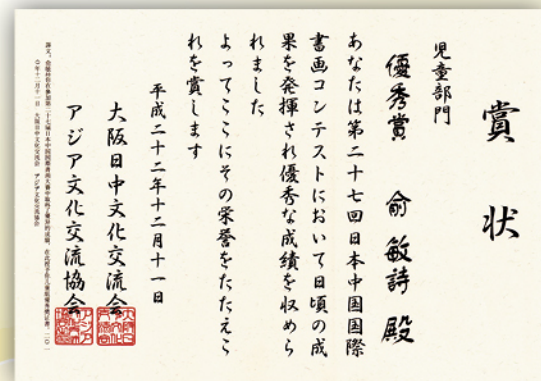 賞状
児童部門
優秀賞 俞敏詩 殿
あなたは第二十七回日本中国国際
書画コンテストにおいて日頃の成
果を発揮され優秀な成績を収めら
れました
よってここにその栄誉をたたえこ
れを賞します
平成二十二年十二月十一日
大阪日中文化交流会
アジア文化交流協会